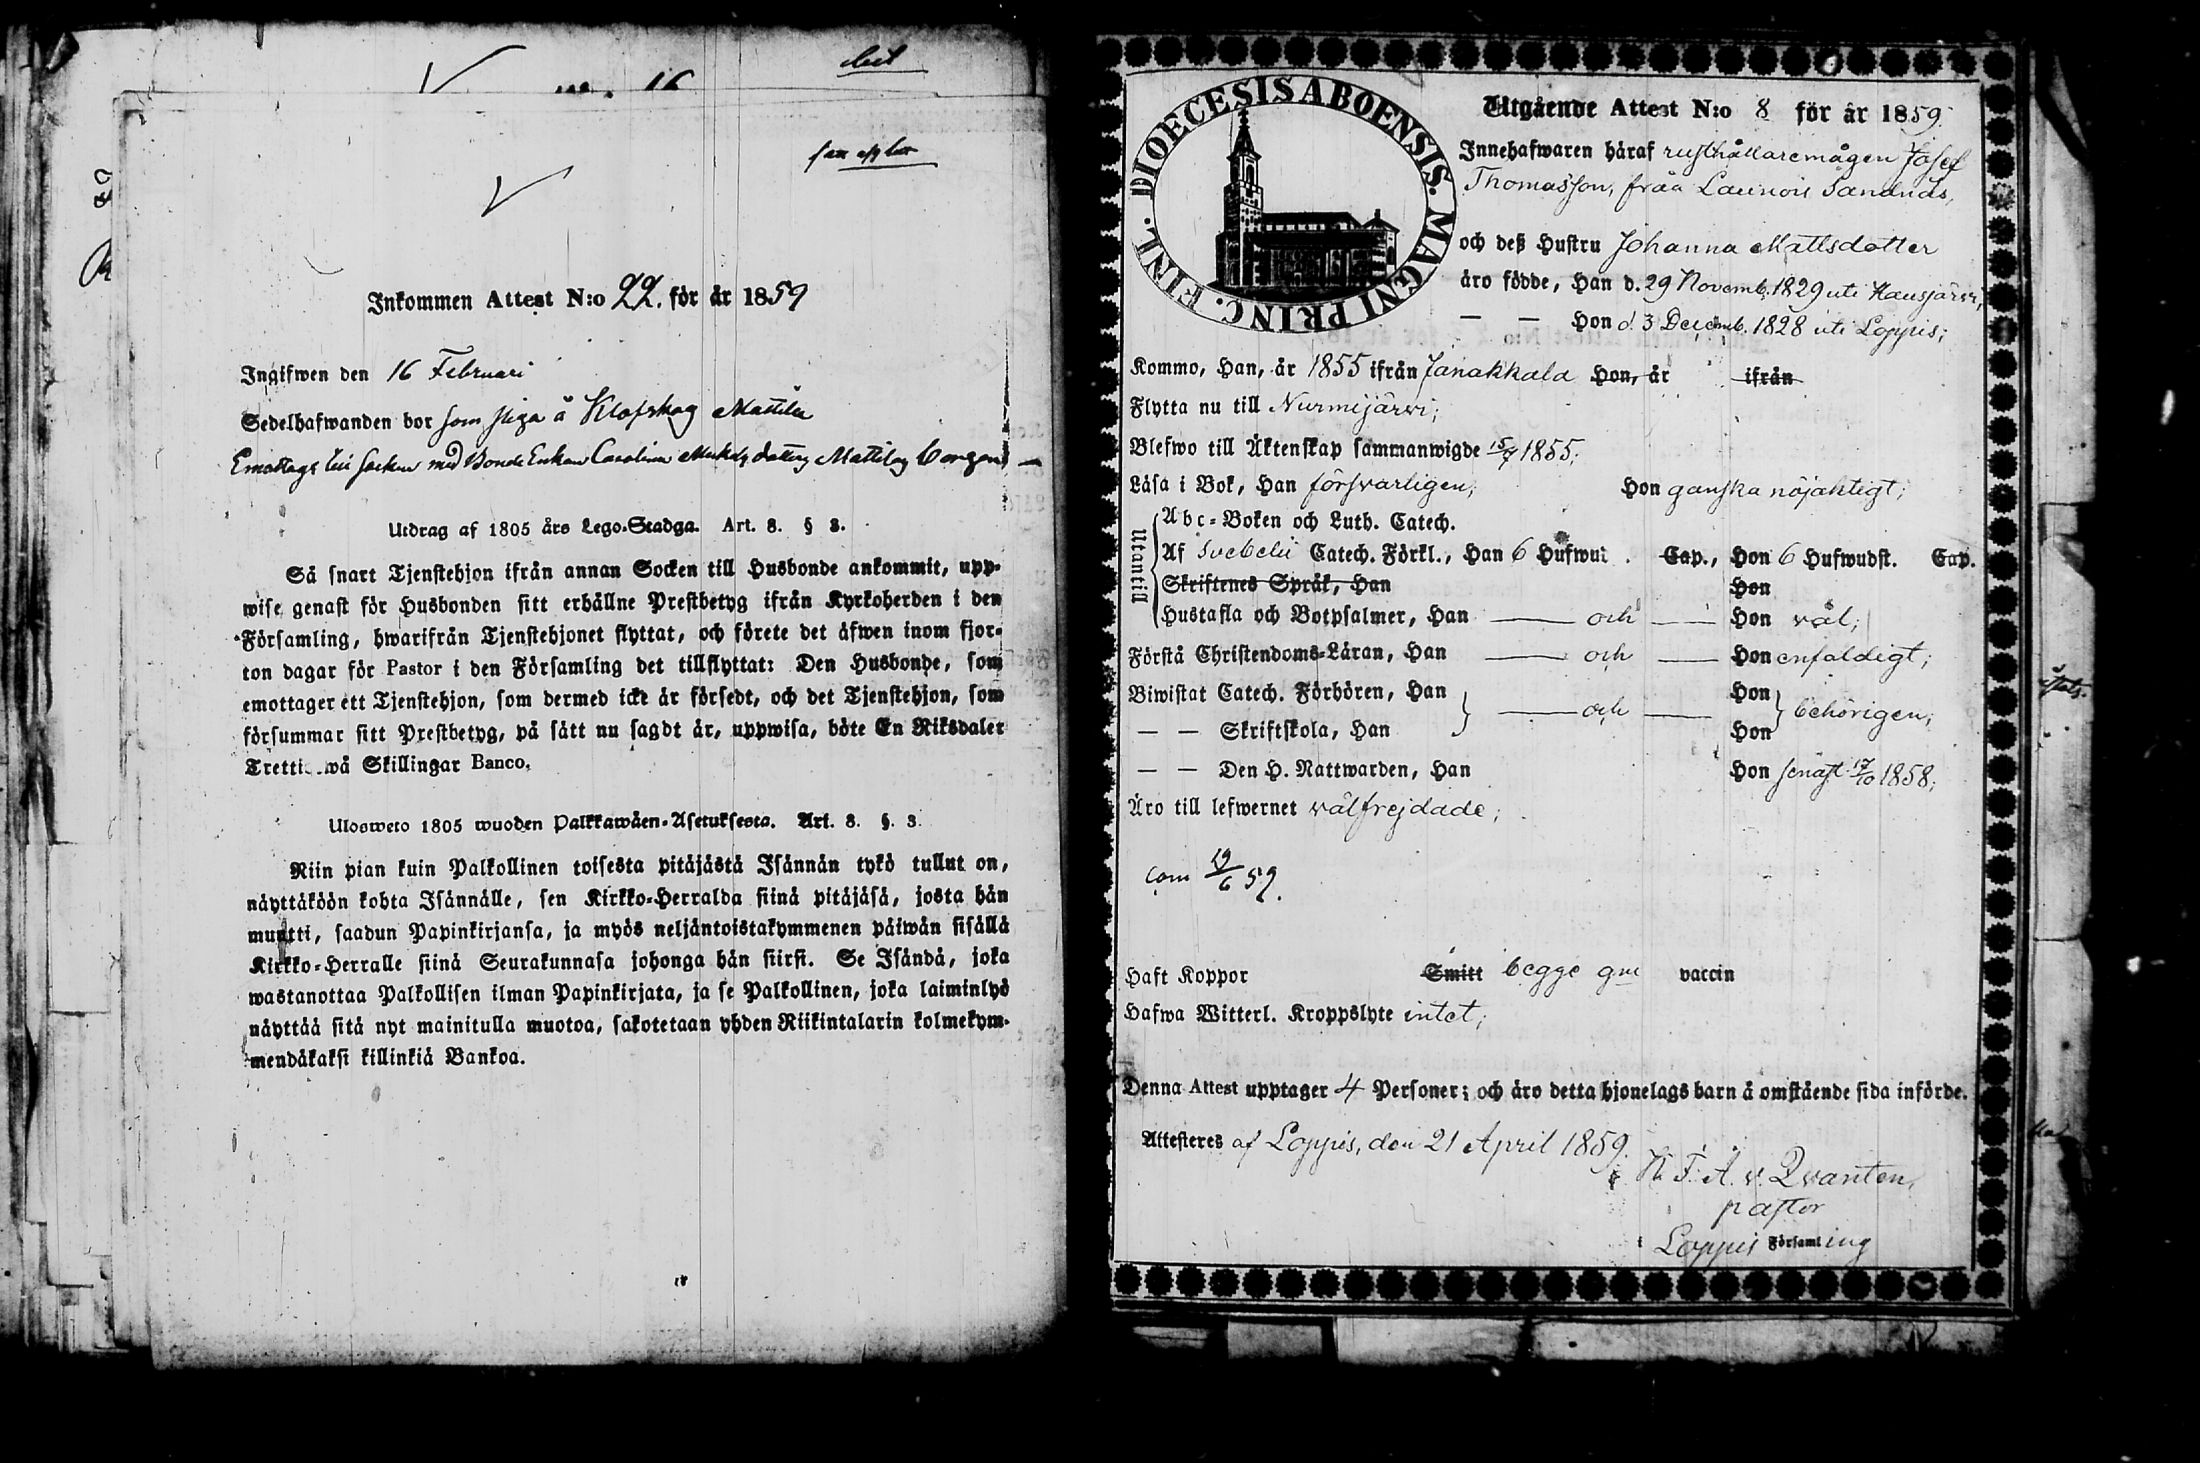 16
Inkommen Attest N:o 22. för år 1859
Ingifwen den 16 Februari
Sedelhafwanden bor som piga å Klofskog Mattila
Emottags till socken med Bonde Enkan Carolina dotter Mattilas borgen
Utdrag af 1805 års Lego-Stadga. Art. 8. § 3.
Så snart Tjenstehjon ifrån annan Socken till Husbonde ankommit, upp-
wise genast för Husbonden sitt erhållne Prestbetyg ifrån Kyrkoherden i den
Församling, hwarifrån Tjenstehjonet flyttat, och förete det äfwen inom fjor-
ton dagar för Pastor i den Församling det tillflyttat: Den Husbonde, som
emottager ett Tjenstehjon, som dermed icke är försedt, och det Tjenstehjon, som
försummar sitt Prestbetyg, på sätt nu sagdt är, uppwisa, böte En Riksdaler
Tretti wå Skillingar Banco.
Ulosweto 1805 wuoden Palkkawäen-Asetuksesta. Art. 8. §. 3.
Niin pian kuin Palkollinen toisesta pitäjästä Isännän tykö tullut on,
näyttäköön kohta Isännälle, sen Kirkko-Herralda siinä pitäjäsä, josta hän
muutti, saadun Papinkirjansa, ja myös neljäntoistakymmenen päiwän sisällä
Kirkko-Herralle siinä Seurakunnasa johonga hän siirsi. Se Isändä, joka
wastanottaa Palkollisen ilman Papinkirjata, ja se Palkollinen, joka laiminlyö
näyttää sitä nyt mainitulla muotoa, sakotetaan yhden Riikintalarin kolmekym-
mendäkaksi killinkiä Bankoa.
DIOECESIS ABOENSIS. MAGNI PRINC. FINL.
Utgående Attest N:o 8 för år 1859.
Innehafwaren häraf rusthållaremågen Josef
Thomasson, från Launois Sandnäs,
och deß Hustru Johanna Mattsdotter
äro födde, Han d. 29 Novemb. 1829 uti Hausjärvi,
— — Hon d. 3 Decemb. 1828 uti Loppis;
Kommo, Han, år 1855 ifrån Janakkala Hon, år ifrån
Flytta nu till Nurmijärvi;
Blefwo till Äktenskap sammanwigde 15/7 1855;
Läsa i Bok, Han försvarligen; Hon ganska nöjaktigt;
Utantill
Abc-Boken och Luth. Catech.
Af Svebelii Catech. Förkl., Han 6 Hufwud . Cap., Hon 6 Hufwudst. Cap.
Skriftenes Språk, Han Hon
Hustafla och Botpsalmer, Han — och — Hon väl;
Förstå Christendoms-Läran, Han — och — Hon enfaldigt;
Biwistat Catech. Förhören, Han — och — Hon behörigen;
— — Skriftskola, Han Hon
— — Den H. Nattwarden, Han Hon senast 17/10 1858;
Äro till lefwernet välfrejdade;
Com 19/6 59.
Haft Koppor Smitt begge gm vaccin
Hafwa Witterl. Kroppslyte intet;
Denna Attest upptager 4 Personer; och äro detta hjonelags barn å omstående sida införde.
Attesteres af Loppis, den 21 April 1859.
F. A. v. Qvanten,
pastor
i Loppis Församling